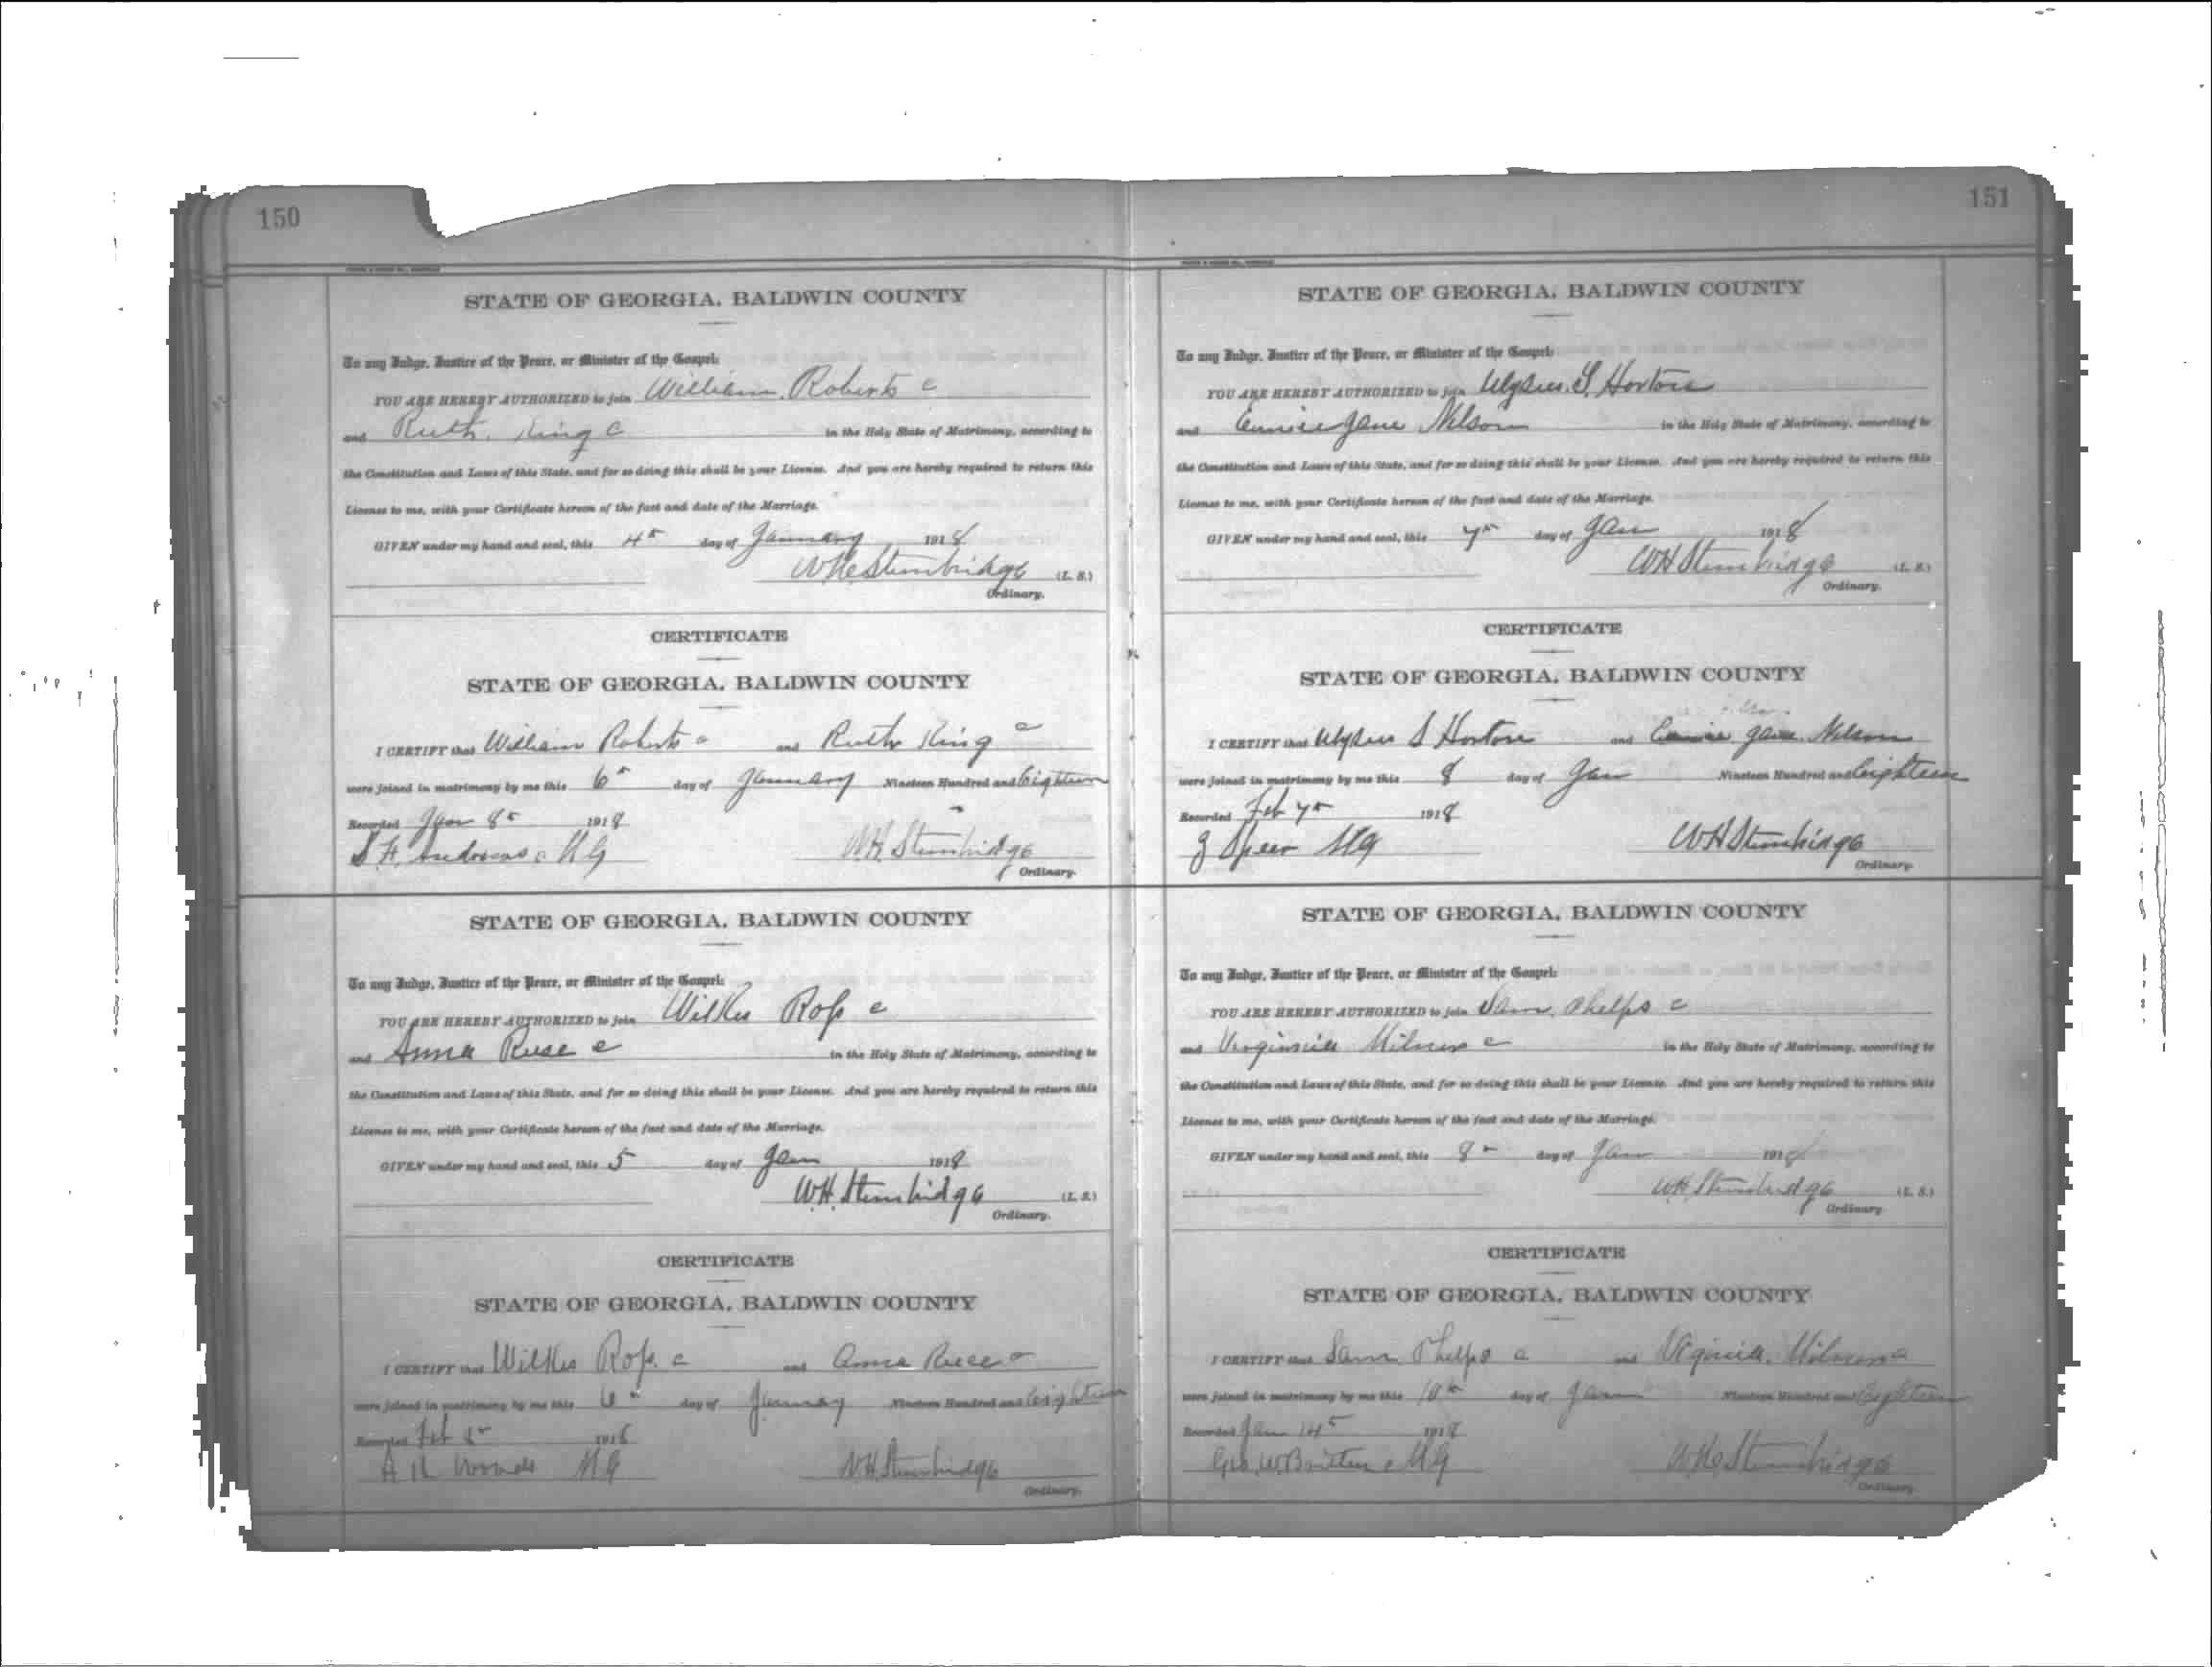 150
STATE OF GEORGIA. BALDWIN COUNTY
To any Judge, Justice of the Peace, or Minister of the Gospel:
YOU ARE HEREBY AUTHORIZED to join William Roberts c
and Ruth King c in the Holy State of Matrimony, according to
the Constitution and Laws of this State, and for so doing this shall be your License. And you are hereby required to return this
License to me, with your Certificate hereon of the fact and date of the Marriage.
GIVEN under my hand and seal, this 4th day of January 1918
WH Stembridge (L. S.)
Ordinary.
CERTIFICATE
STATE OF GEORGIA. BALDWIN COUNTY
I CERTIFY that William Roberts c and Ruth King c
were joined in matrimony by me this 6th day of January Nineteen Hundred and Eighteen
Recorded Jan 8th 1918
S H Andrews c MG W.H. Stembridge
Ordinary.
STATE OF GEORGIA. BALDWIN COUNTY
To any Judge, Justice of the Peace, or Minister of the Gospel:
YOU ARE HEREBY AUTHORIZED to join Wilkes Ross c
and Anna Reese c in the Holy State of Matrimony, according to
the Constitution and Laws of this State, and for so doing this shall be your License. And you are hereby required to return this
License to me, with your Certificate hereon of the fact and date of the Marriage.
GIVEN under my hand and seal, this 5 day of Jan 1918
W.H. Stembridge (L. S.)
Ordinary.
CERTIFICATE
STATE OF GEORGIA. BALDWIN COUNTY
I CERTIFY that Wilkes Ross c and Anna Reese c
were joined in matrimony by me this 6th day of January Nineteen Hundred and Eighteen
Recorded Feb 1918
Woods MG W.H. Stembridge
Ordinary.
151
STATE OF GEORGIA. BALDWIN COUNTY
To any Judge, Justice of the Peace, or Minister of the Gospel:
YOU ARE HEREBY AUTHORIZED to join Ulysses S Horton
and Eunice Jane Nelson in the Holy State of Matrimony, according to
the Constitution and Laws of this State, and for so doing this shall be your License. And you are hereby required to return this
License to me, with your Certificate hereon of the fact and date of the Marriage.
GIVEN under my hand and seal, this 7th day of Jan 1918
WH Stembridge (L. S.)
Ordinary.
CERTIFICATE
STATE OF GEORGIA. BALDWIN COUNTY
I CERTIFY that Ulysses S Horton and Eunice Jane Nelson
were joined in matrimony by me this 8 day of Jan Nineteen Hundred and Eighteen
Recorded Feb 7th 1918
J Speer MG WH Stembridge
Ordinary.
STATE OF GEORGIA. BALDWIN COUNTY
To any Judge, Justice of the Peace, or Minister of the Gospel:
YOU ARE HEREBY AUTHORIZED to join Sam Phelps c
and Virginia c in the Holy State of Matrimony, according to
the Constitution and Laws of this State, and for so doing this shall be your License. And you are hereby required to return this
License to me, with your Certificate hereon of the fact and date of the Marriage.
GIVEN under my hand and seal, this 8th day of Jan 1918
WH Stembridge (L. S.)
Ordinary
CERTIFICATE
STATE OF GEORGIA. BALDWIN COUNTY
I CERTIFY that Sam Phelps c and Virginia c
were joined in matrimony by me this 10th day of Jan Nineteen Hundred and Eighteen
Recorded Jan 14th 1918
Geo. W. c MG WH Stembridge
Ordinary